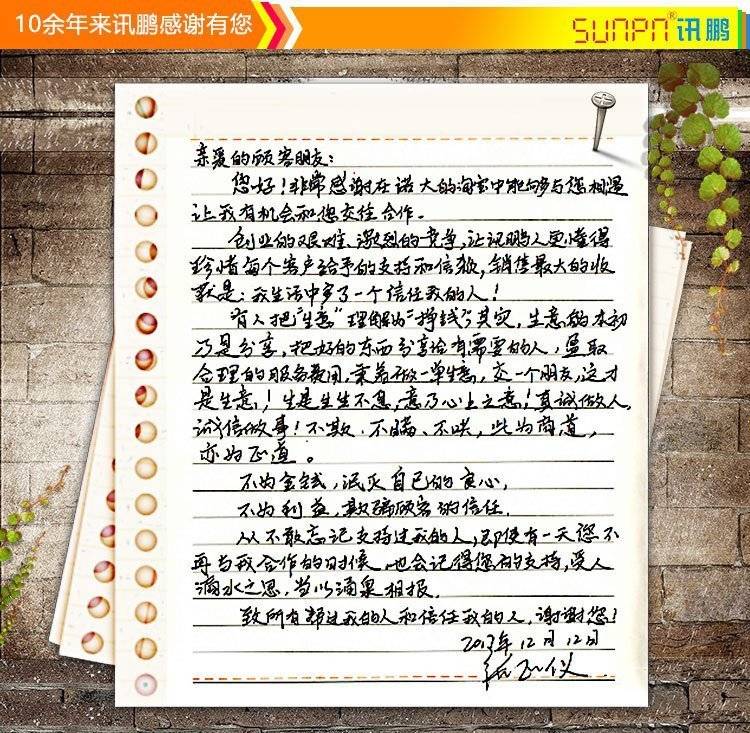 10余年来讯鹏感谢有您
SUNPN®讯鹏
亲爱的顾客朋友:
您好!非常感谢在诺大的淘宝中能够与您相遇
让我有机会和您交往合作。
创业的艰难、激烈的竞争,让讯鹏人更懂得
珍惜每个客户给予的支持和信赖,销售最大的收
获是:我生活中多了一个信任我的人!
有人把“生意”理解为“挣钱”,其实,生意的本初
乃是分享,把好的东西分享给有需要的人,盈取
合理的服务费用,秉着做一单生意,交一个朋友,这才
是生意!生是生生不息,意乃心上之意!真诚做人,
诚信做事!不欺、不瞒、不哄,此为商道,
亦为正道。
不为金钱,泯灭自己的良心,
不为利益,欺骗顾客的信任.
从不敢忘记支持过我的人,即使有一天您不
再与我合作的时候,也会记得您有的支持,受人
滴水之恩,当以涌泉相报.
致所有帮过我的人和信任我的人,谢谢您!
2013年12月12日